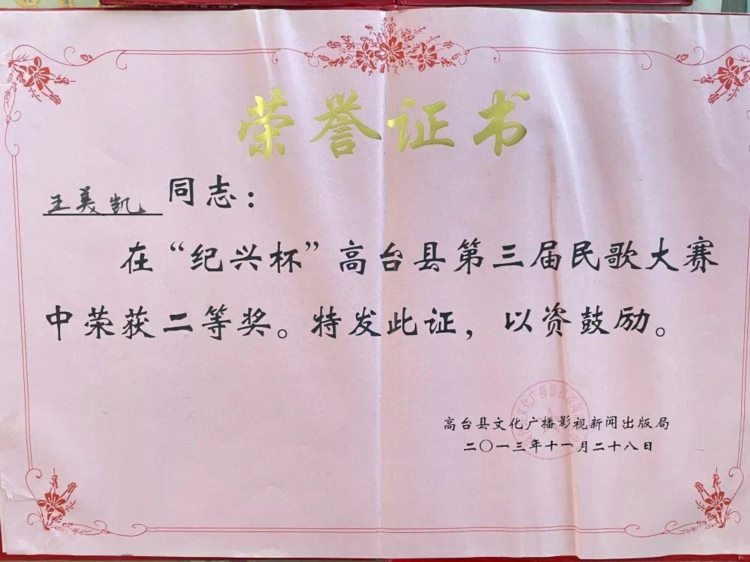 荣誉证书
王美凯 同志：
在“纪兴杯”高台县第三届民歌大赛
中荣获二等奖。特发此证，以资鼓励。
高台县文化广播影视新闻出版局
二〇一三年十一月二十八日